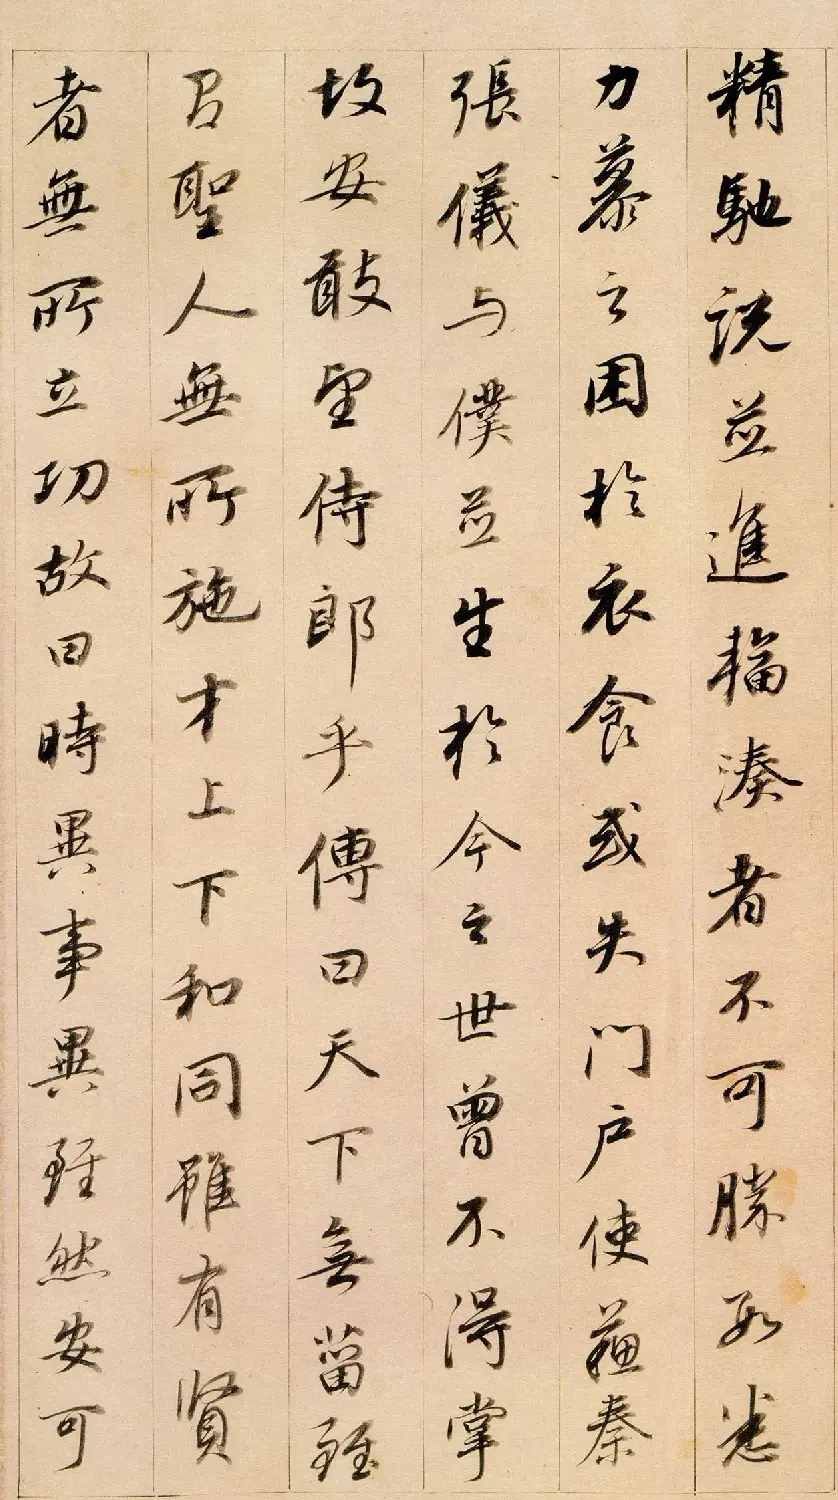 精馳説並進輻湊者不可勝数悉
力慕之困於衣食或失門户使蘓秦
張儀与僕並生於今之世曾不得掌
故安敢望侍郎乎傳曰天下無菑雖
有聖人無所施才上下和同雖有賢
者無所立功故曰時異事異雖然安可